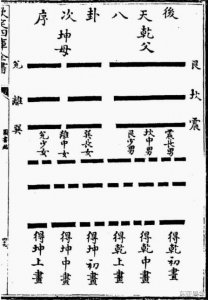 後天八卦次序
乾父
坤母
艮
坎
震
兌
離
巽
震長男
坎中男
艮少男
巽長女
離中女
兌少女
得乾初畫
得乾中畫
得乾上畫
得坤初畫
得坤中畫
得坤上畫
四庫全書
圖書編